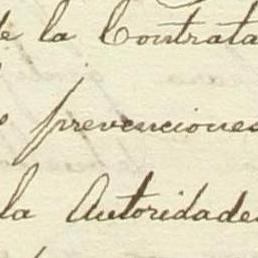 de la Contrata
prevenciones
la Autoridades